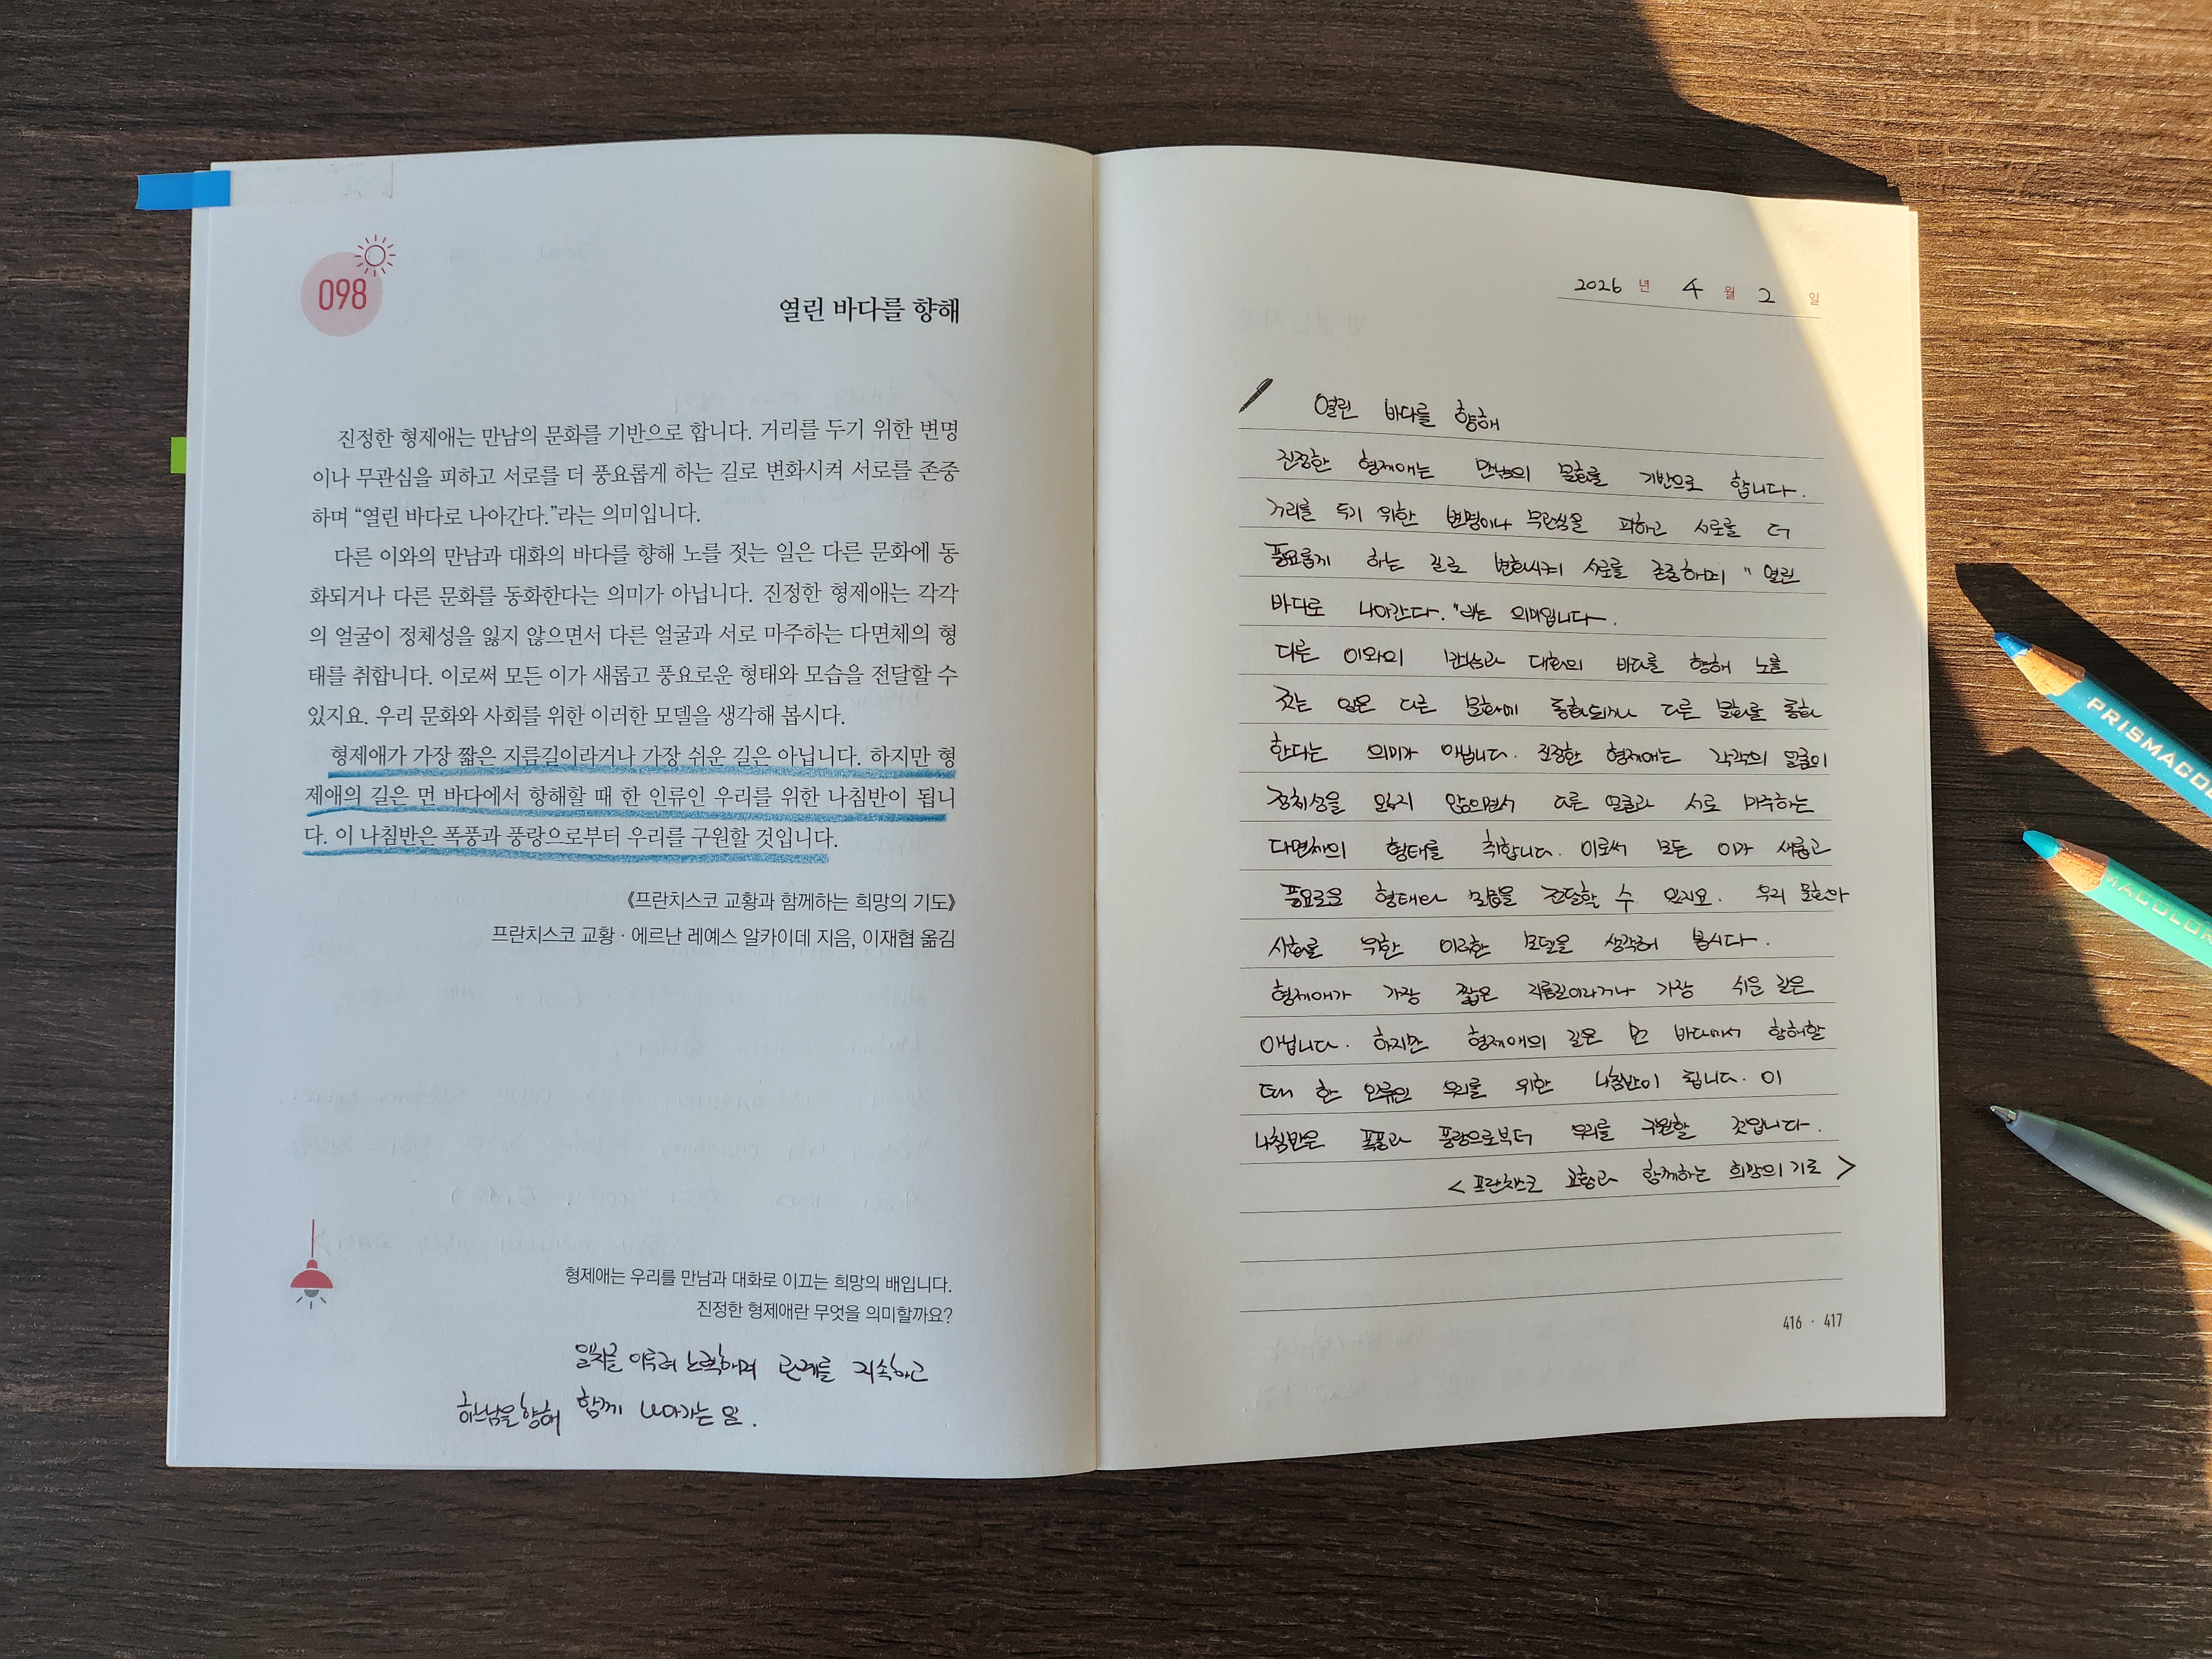 098
열린 바다를 향해
진정한 형제애는 만남의 문화를 기반으로 합니다. 거리를 두기 위한 변명
이나 무관심을 피하고 서로를 더 풍요롭게 하는 길로 변화시켜 서로를 존중
하며 “열린 바다로 나아간다.”라는 의미입니다.
다른 이와의 만남과 대화의 바다를 향해 노를 젓는 일은 다른 문화에 동
화되거나 다른 문화를 동화한다는 의미가 아닙니다. 진정한 형제애는 각각
의 얼굴이 정체성을 잃지 않으면서 다른 얼굴과 서로 마주하는 다면체의 형
태를 취합니다. 이로써 모든 이가 새롭고 풍요로운 형태와 모습을 전달할 수
있지요. 우리 문화와 사회를 위한 이러한 모델을 생각해 봅시다.
형제애가 가장 짧은 지름길이라거나 가장 쉬운 길은 아닙니다. 하지만 형
제애의 길은 먼 바다에서 항해할 때 한 인류인 우리를 위한 나침반이 됩니
다. 이 나침반은 폭풍과 풍랑으로부터 우리를 구원할 것입니다.
《프란치스코 교황과 함께하는 희망의 기도》
프란치스코 교황 · 에르난 레예스 알카이데 지음, 이재협 옮김
형제애는 우리를 만남과 대화로 이끄는 희망의 배입니다.
진정한 형제애란 무엇을 의미할까요?
일치를 이루려 노력하며 관계를 지속하고
하느님을 향해 함께 나아가는 일.
2026 년 4 월 2 일
열린 바다를 향해
진정한 형제애는 만남의 문화를 기반으로 합니다.
거리를 두기 위한 변명이나 무관심을 피하고 서로를 더
풍요롭게 하는 길로 변화시켜 서로를 존중하며 " 열린
바다로 나아간다."라는 의미입니다.
다른 이와의 만남과 대화의 바다를 향해 노를
젓는 일은 다른 문화에 동화되거나 다른 문화를 동화
한다는 의미가 아닙니다. 진정한 형제애는 각각의 얼굴이
정체성을 잃지 않으면서 다른 얼굴과 서로 마주하는
다면체의 형태를 취합니다. 이로써 모든 이가 새롭고
풍요로운 형태와 모습을 전달할 수 있지요. 우리 문화와
사회를 위한 이러한 모델을 생각해 봅시다.
형제애가 가장 짧은 지름길이라거나 가장 쉬운 길은
아닙니다. 하지만 형제애의 길은 먼 바다에서 항해할
때 한 인류인 우리를 위한 나침반이 됩니다. 이
나침반은 폭풍과 풍랑으로부터 우리를 구원할 것입니다.
< 프란치스코 교황과 함께하는 희망의 기도 >
416 · 417
PRISMACOL
MACOLOR